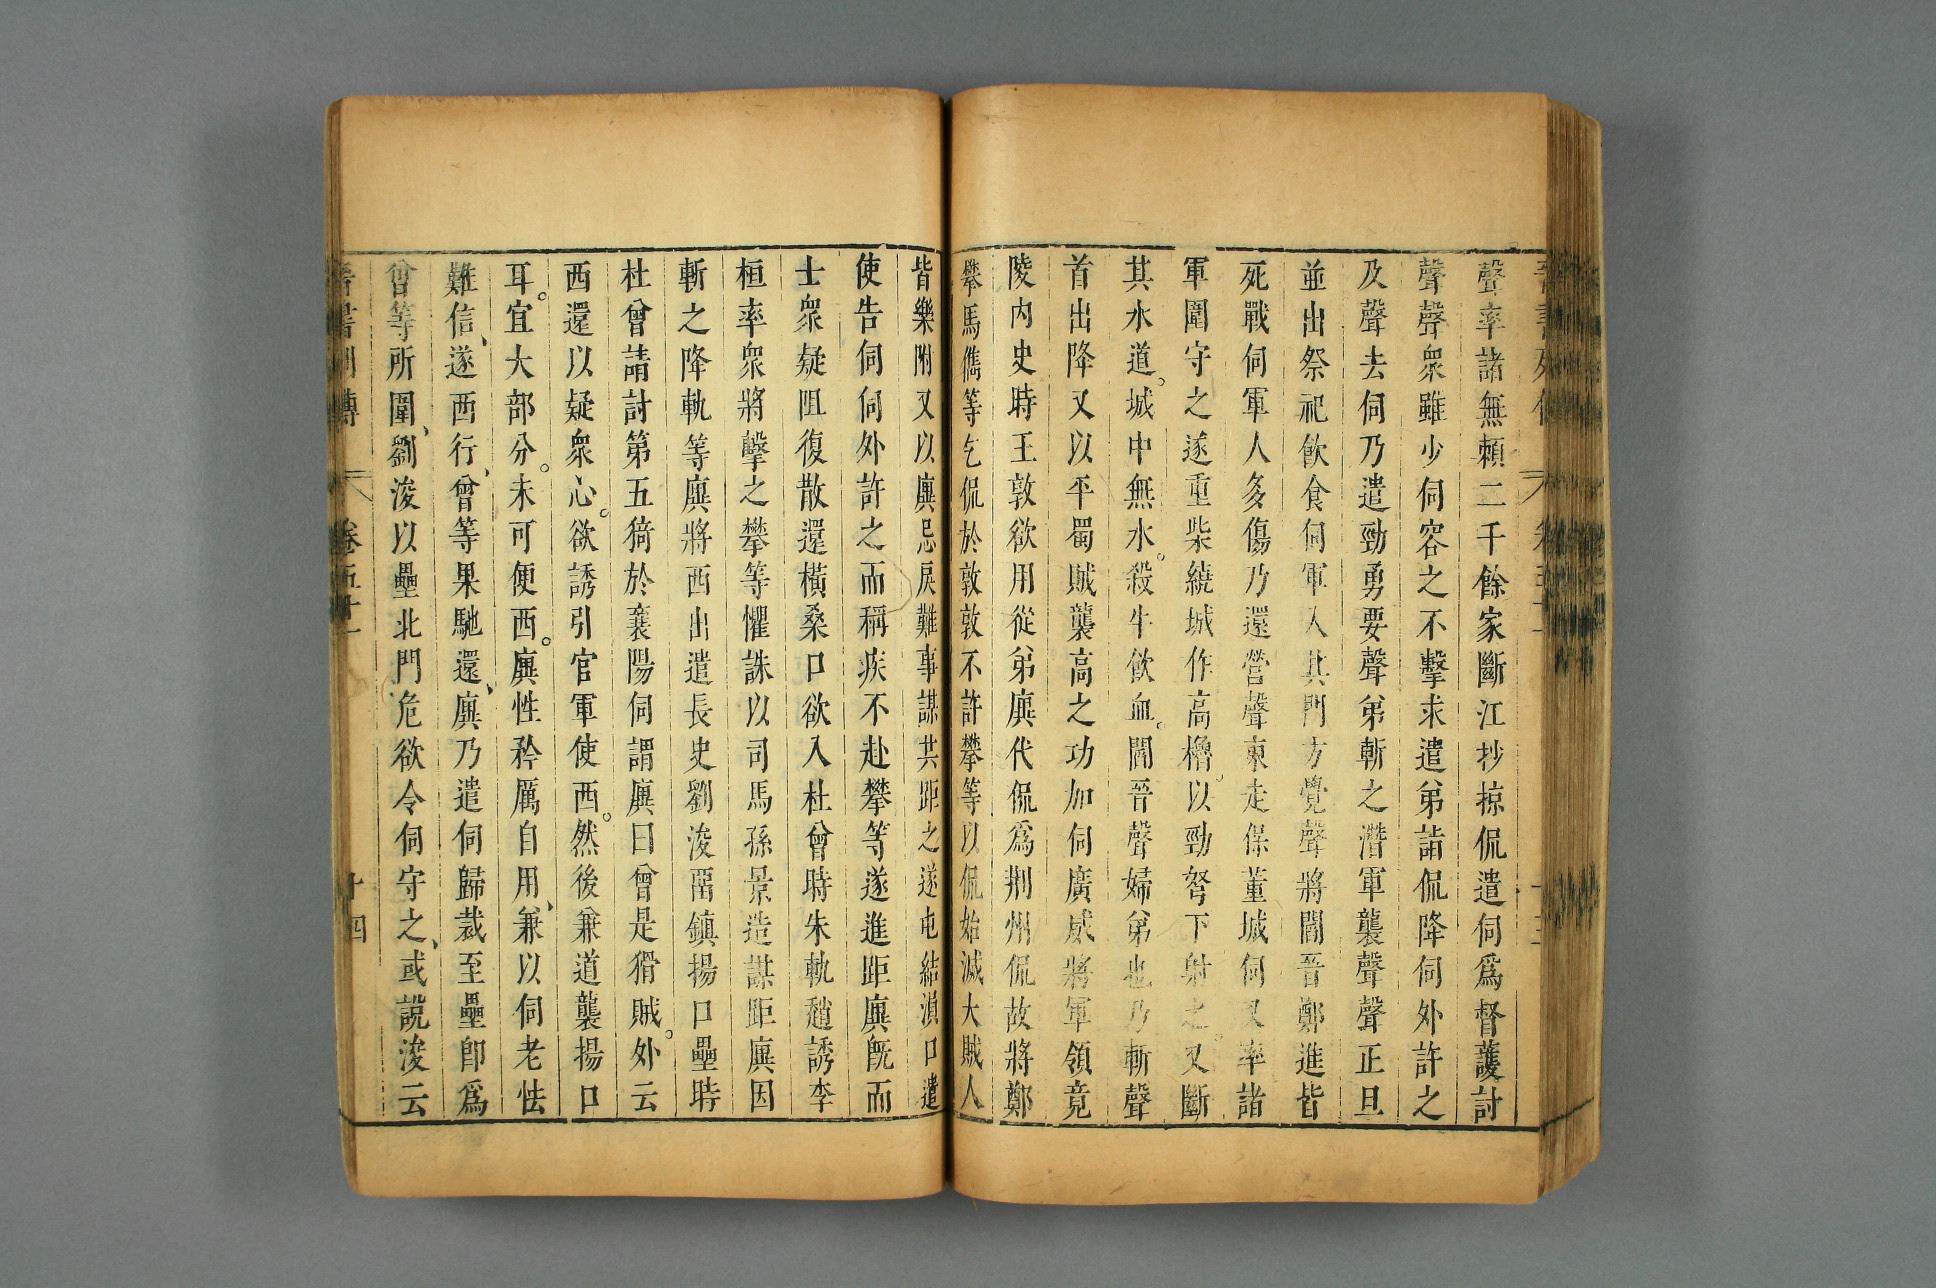 聲率諸無賴二千餘家斷江抄掠侃遣伺爲督護討
聲聲衆雖少伺容之不擊求遣弟詣侃降伺外許之
及聲去伺乃遣勁勇要聲弟斬之潛軍襲聲聲正旦
並出祭祀飮食伺軍入其門方覺聲將閻晉鄭進皆
死戰伺軍人多傷乃還營聲東走保董城伺又率諸
軍圍守之遂重柴繞城作高櫓以勁弩下射之又斷
其水道城中無水殺牛飮血閻晉聲婦弟也乃斬聲
首出降又以平蜀賊襲高之功加伺廣威將軍領竟
陵內史時王敦欲用從弟廙代侃爲荆州侃故將鄭
攀馬儁等乞侃於敦敦不許攀等以侃始滅大賊人
皆樂附又以廙忌戾難事謀共距之遂屯結溳口遣
使告伺伺外許之而稱疾不赴攀等遂進距廙旣而
士衆疑阻復散還橫桑口欲入杜曾時朱軌趙誘李
桓率衆將擊之攀等懼誅以司馬孫景造謀距廙因
斬之降軌等廙將西出遣長史劉浚畱鎭揚口壘時
杜曾請討第五猗於襄陽伺謂廙曰曾是猾賊外云
西還以疑衆心欲誘引官軍使西然後兼道襲揚口
耳宜大部分未可便西廙性矜厲自用兼以伺老怯
難信遂西行曾等果馳還廙乃遣伺歸裁至壘卽爲
曾等所圍劉浚以壘北門危欲令伺守之或說浚云
晉書列傳 卷五十一 十四